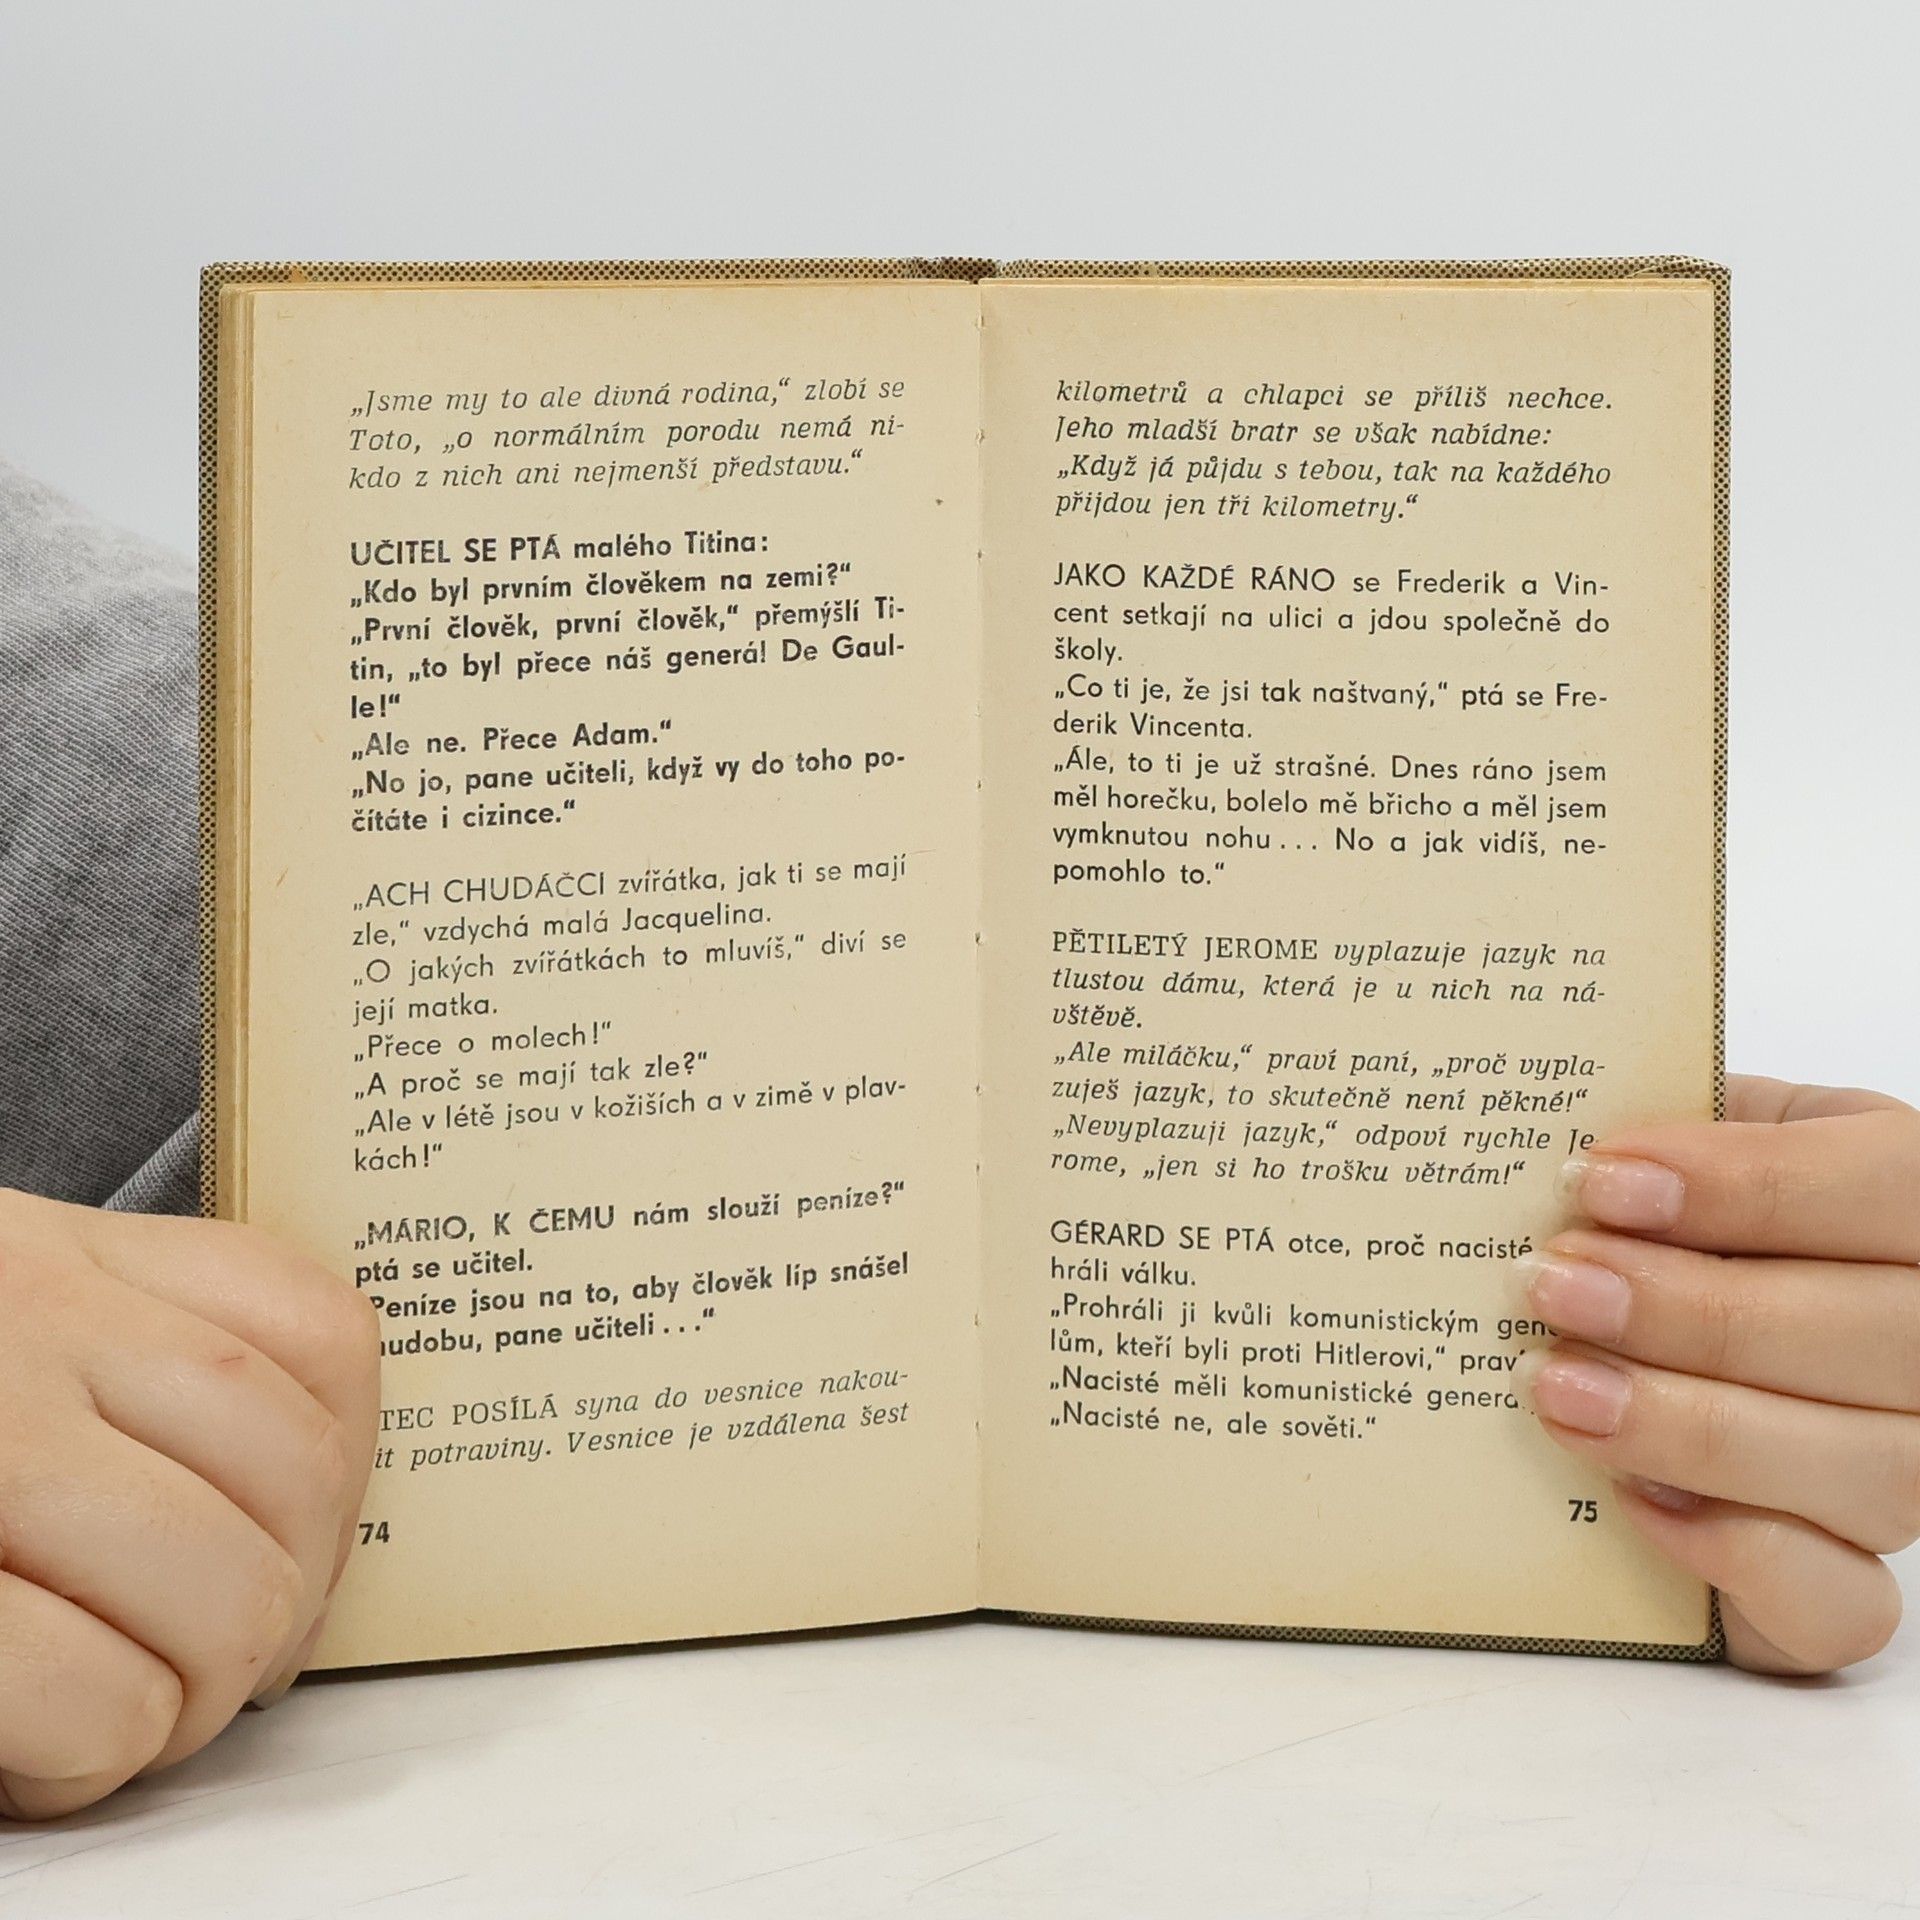 „Jsme my to ale divná rodina,“ zlobí se
Toto, „o normálním porodu nemá ni-
kdo z nich ani nejmenší představu.“
UČITEL SE PTÁ malého Titina:
„Kdo byl prvním člověkem na zemi?“
„První člověk, první člověk,“ přemýšlí Ti-
tin, „to byl přece náš generál De Gaul-
le!“
„Ale ne. Přece Adam.“
„No jo, pane učiteli, když vy do toho po-
čítáte i cizince.“
„ACH CHUDÁČCI zvířátka, jak ti se mají
zle,“ vzdychá malá Jacquelina.
„O jakých zvířátkách to mluvíš,“ diví se
její matka.
„Přece o molech!“
„A proč se mají tak zle?“
„Ale v létě jsou v kožiších a v zimě v plav-
kách!“
„MÁRIO, K ČEMU nám slouží peníze?“
ptá se učitel.
Peníze jsou na to, aby člověk líp snášel
pane učiteli...“
POSÍLÁ syna do vesnice nakou-
potraviny. Vesnice je vzdálena šest
74
kilometrů a chlapci se příliš nechce.
Jeho mladší bratr se však nabídne:
„Když já půjdu s tebou, tak na každého
přijdou jen tři kilometry.“
JAKO KAŽDÉ RÁNO se Frederik a Vin-
cent setkají na ulici a jdou společně do
školy.
„Co ti je, že jsi tak naštvaný,“ ptá se Fre-
derik Vincenta.
„Ále, to ti je už strašné. Dnes ráno jsem
měl horečku, bolelo mě břicho a měl jsem
vymknutou nohu... No a jak vidíš, ne-
pomohlo to.“
PĚTILETÝ JEROME vyplazuje jazyk na
tlustou dámu, která je u nich na ná-
vštěvě.
„Ale miláčku,“ praví paní, „proč vypla-
zuješ jazyk, to skutečně není pěkné!“
„Nevyplazuji jazyk,“ odpoví rychle Je-
rome, „jen si ho trošku větrám!“
GÉRARD SE PTÁ otce, proč nacisté
hráli válku.
„Prohráli ji kvůli komunistickým
lům, kteří byli proti Hitlerovi,“
„Nacisté měli komunistické
„Nacisté ne, ale sověti.“
75